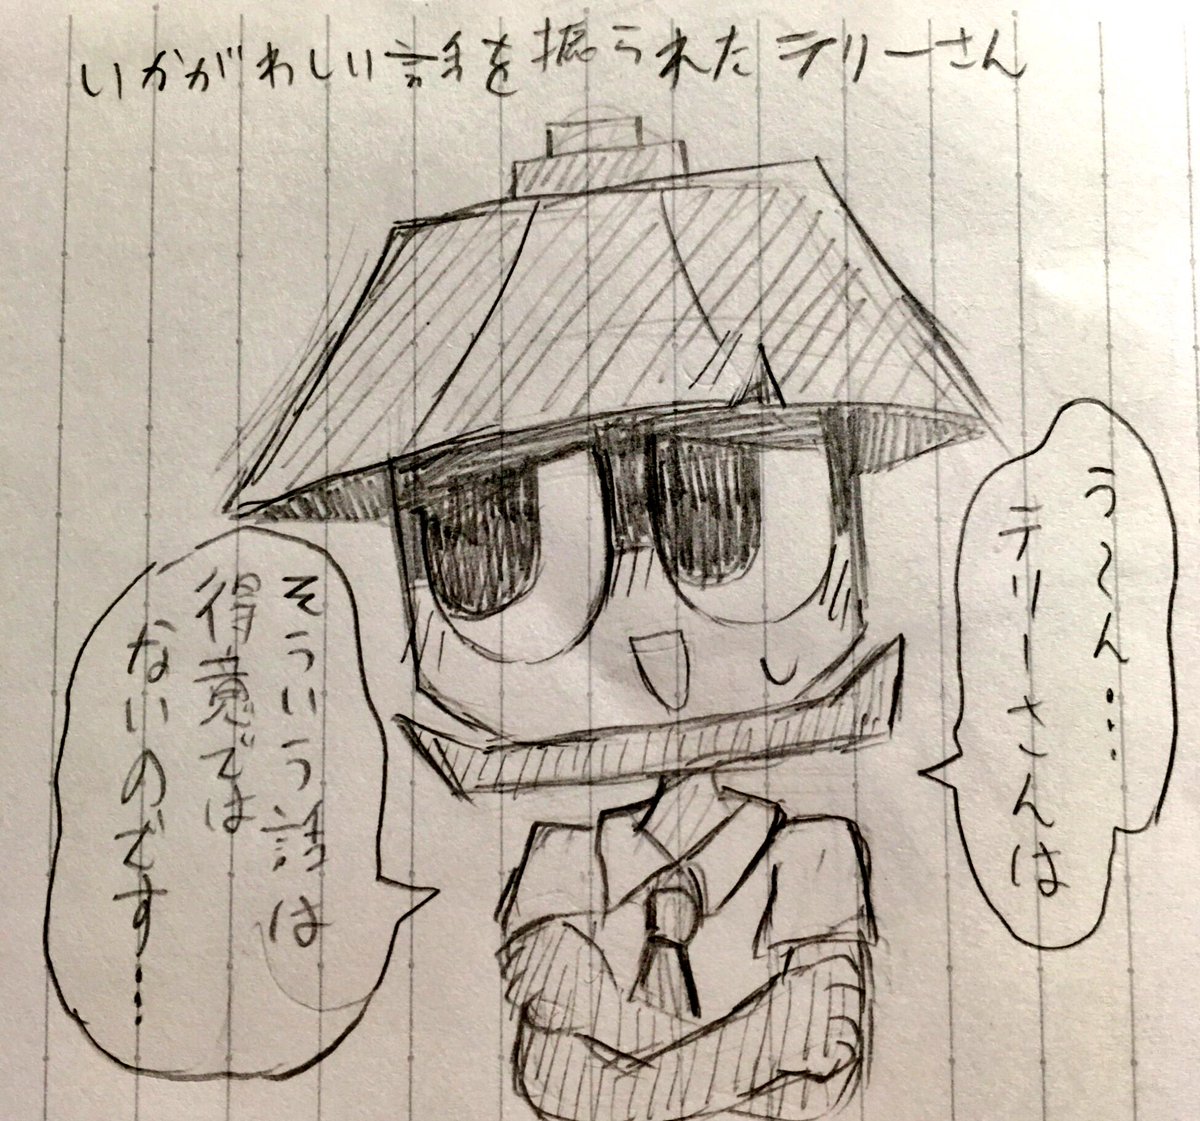 いかがわしい話を振られたテリーさん
う〜ん…
テリーさんは
そういう話は
得意では
ないのです…